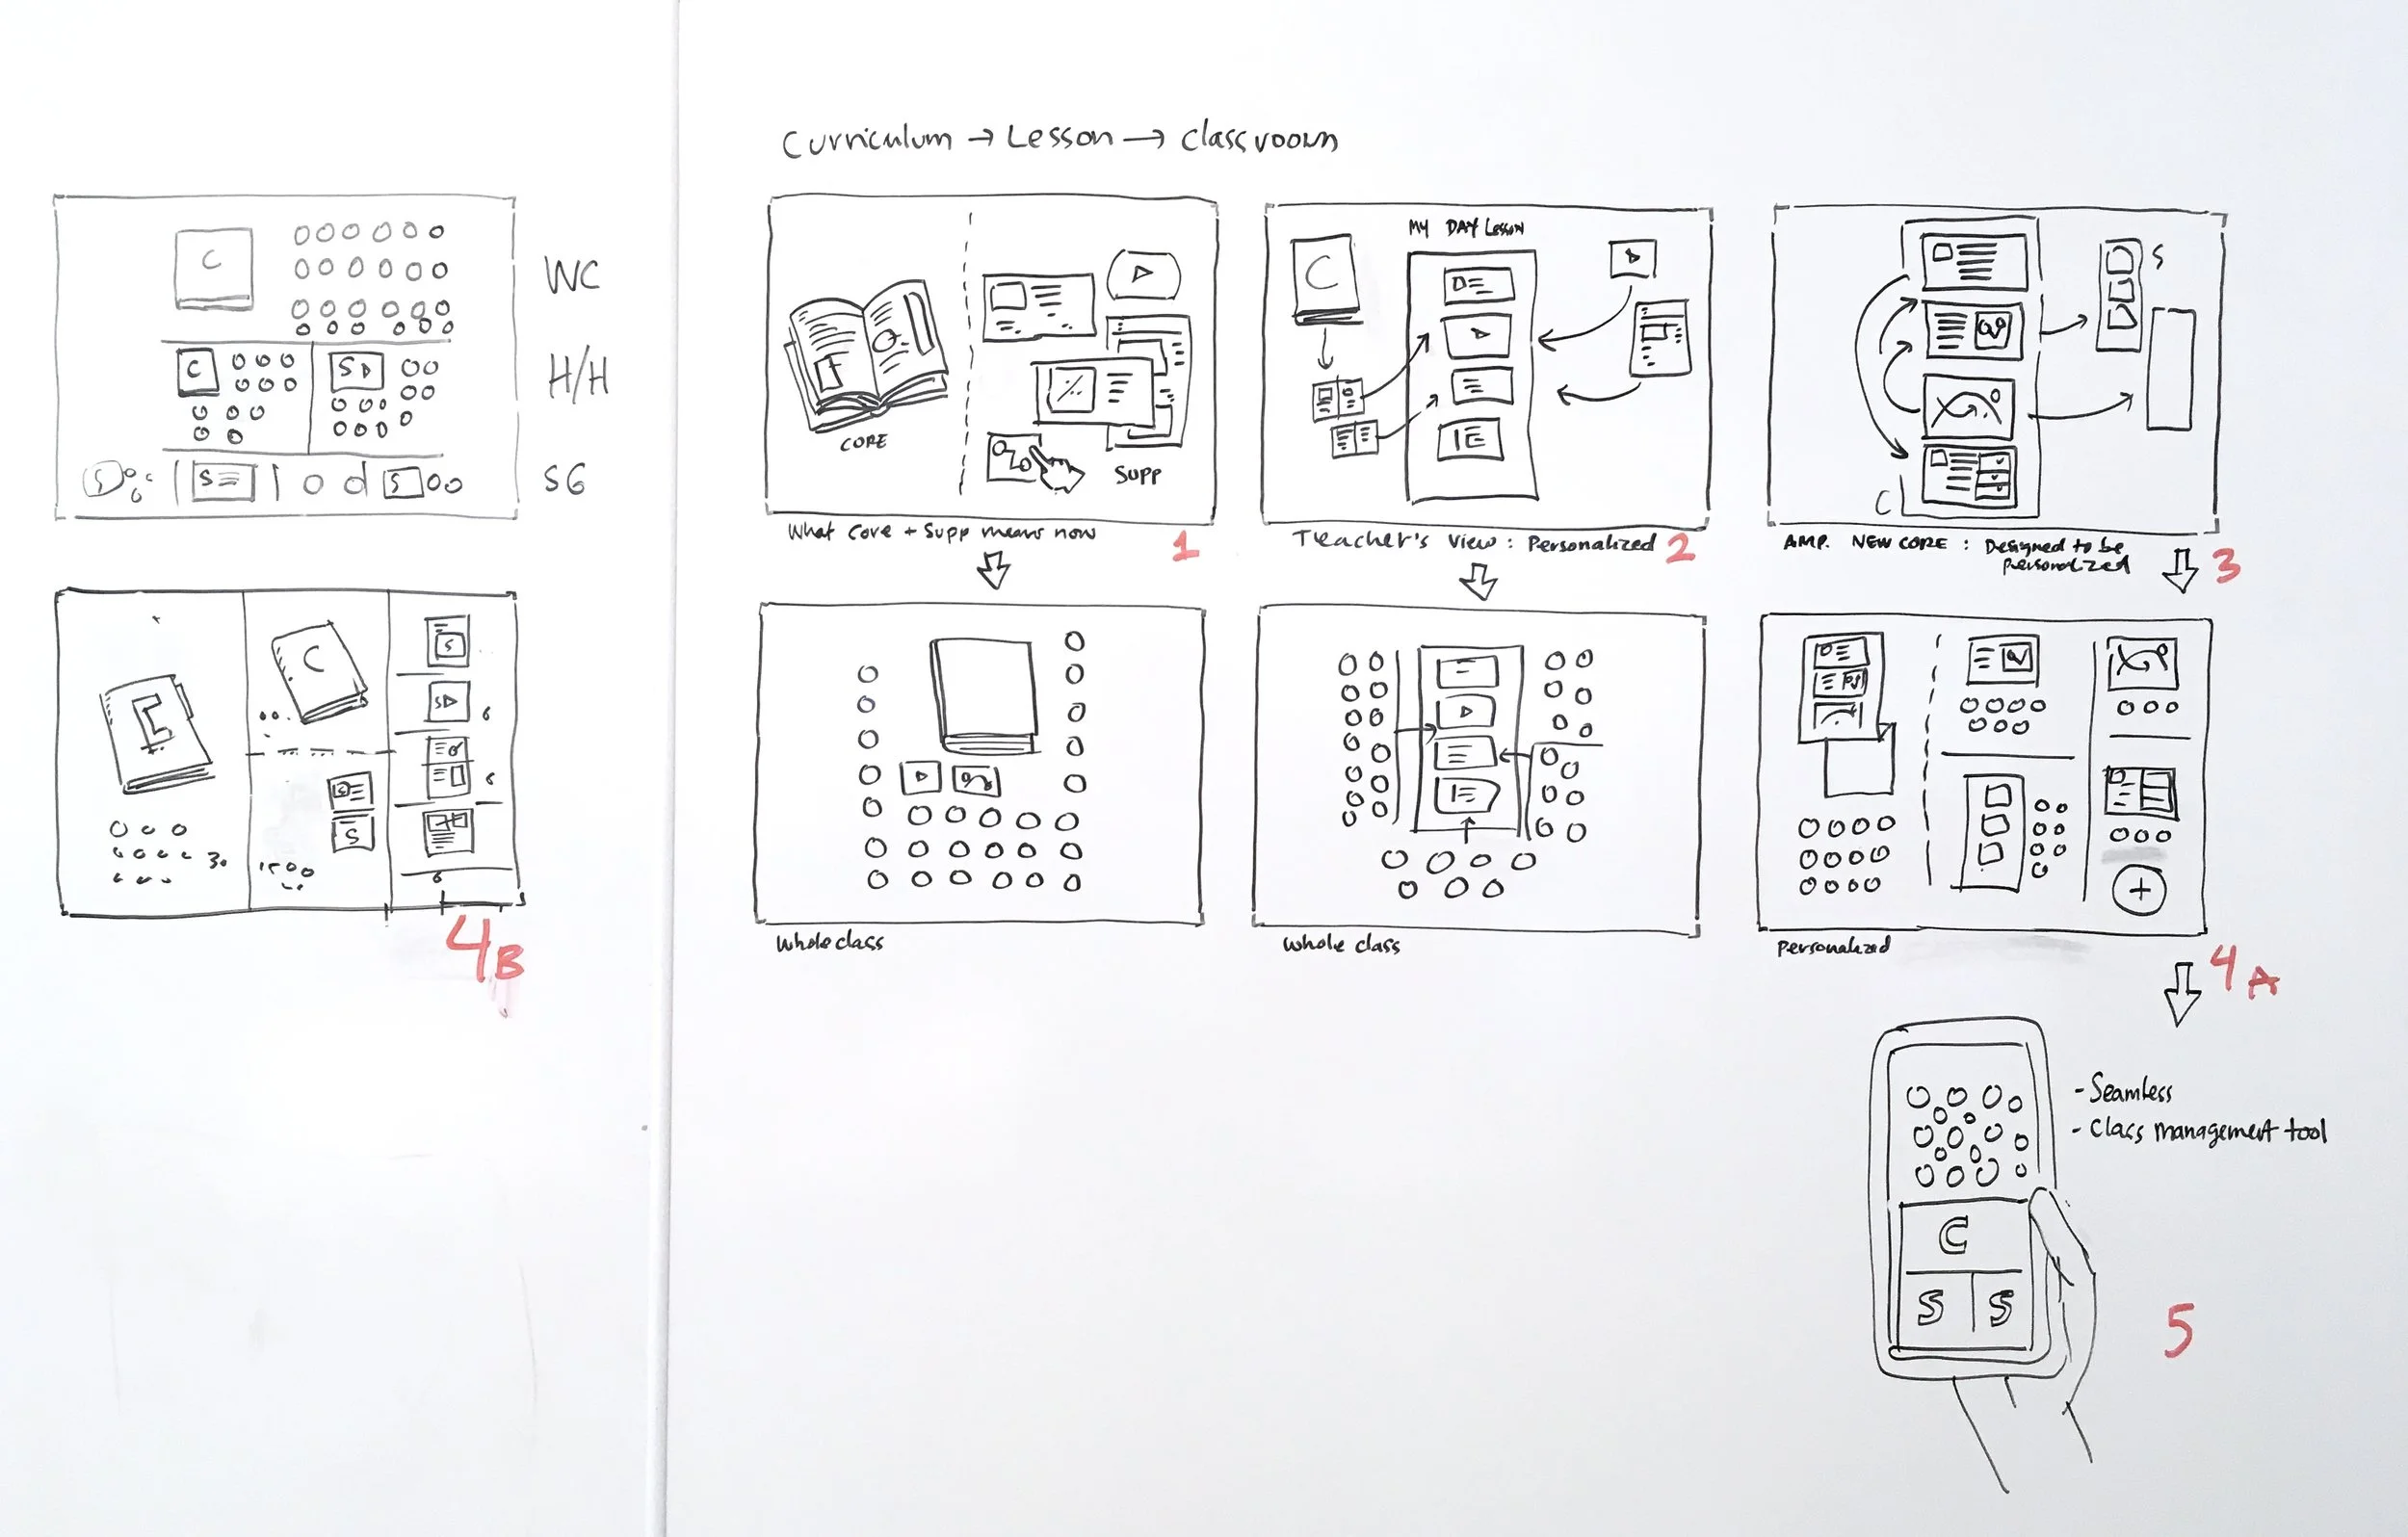 Curriculum → Lesson → classroom
C
WC
C
S
H/H
S
S
S
SG
CORE
SUPP
What Core + Supp means now
1
MY DAY Lesson
C
Teacher's View : Personalized
2
S
C
AMP. NEW CORE : Designed to be
personalized
3
C
C
S
S
S
S
30
6
6
6
4B
Whole class
Whole class
+
Personalized
4A
- Seamless
- Class management tool
C
S
S
5